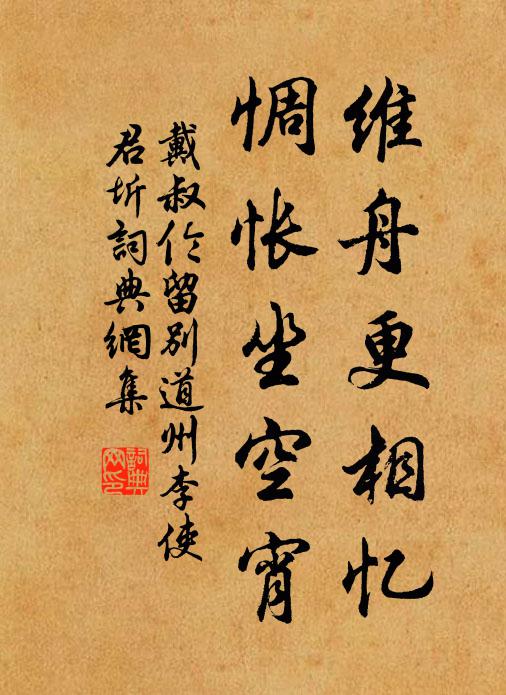 维舟更相忆
惆怅坐空宵
戴叔伦留别道州李使
君圻词典網集
詞典